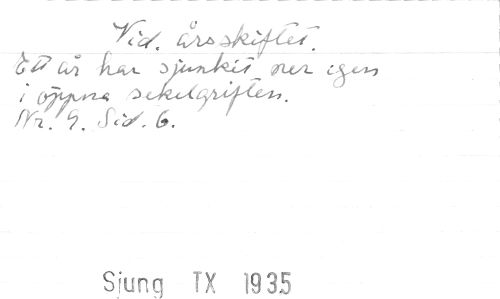 Vid. årsskiftet.
Ett år har sjunkit ner igen
i öppna sekelgriften.
Nr. 9. Sid. 6.
Sjung TX 1935